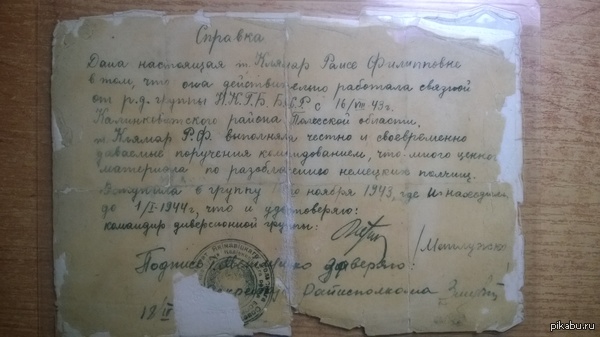 Справка
Дана настоящая т. Клямар Раисе Филипповне
в том, что она действительно работала связной
от р.д. группы Н.К.Г.Б. Б.С.С.Р с 16/VIII 43г.
Калинковичского района Полесской области.
т. Клямар Р.Ф. выполняла честно и своевременно
даваемые поручения командованием, что много ценного
материала по разоблачению немецких полчищ.
Вступила в группу ноября 1943, где и находилась
до 1/I-1944г, что и удостоверяю:
командир диверсионной группы:
Подпись доверяю:
Райисполкома
pikabu.ru